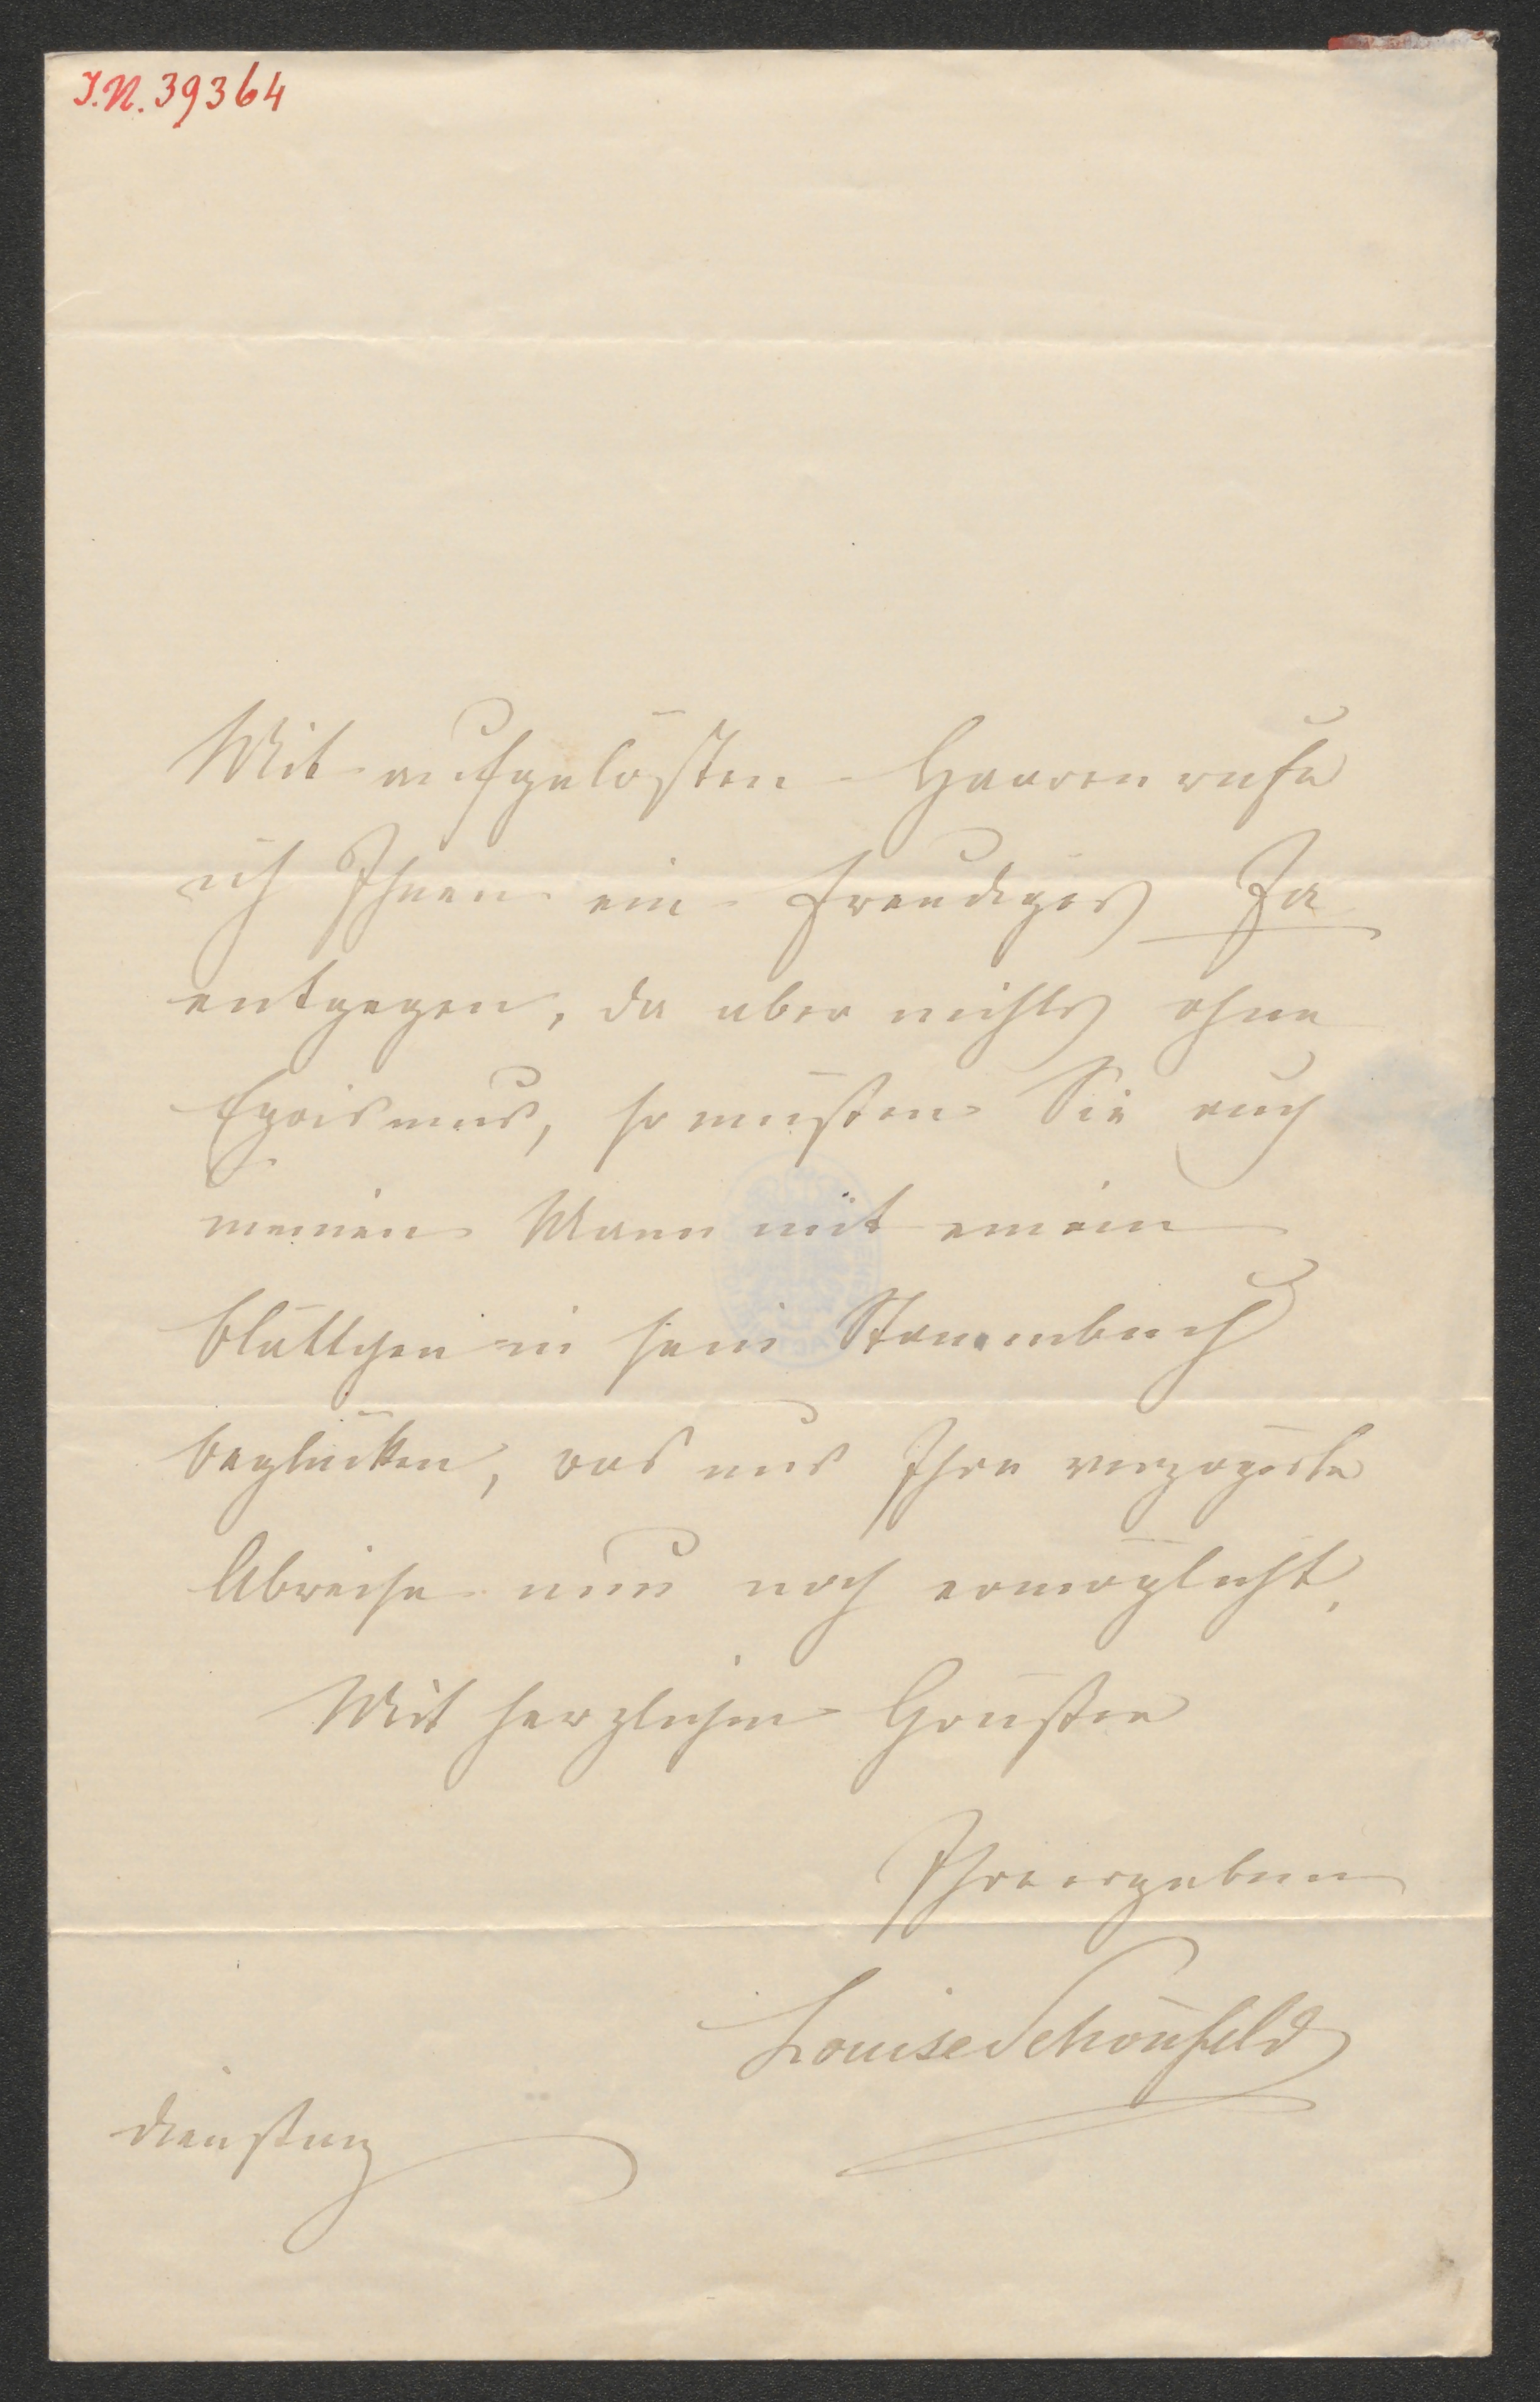 I.N. 39364
Mit aufgelösten Haaren rufe
ich Ihnen ein freudiges Ja
entgegen, da aber nichts ohne
Egoismus, so müßten Sie auch
meinen Mann mit einem
Blättchen in sein Stammbuch
beglücken, was uns Ihre verzögerte
Abreise nun noch ermöglicht,
Mit herzlichen Grüßen
Ihre ergebene
Louise Schönfeld
Dienstag